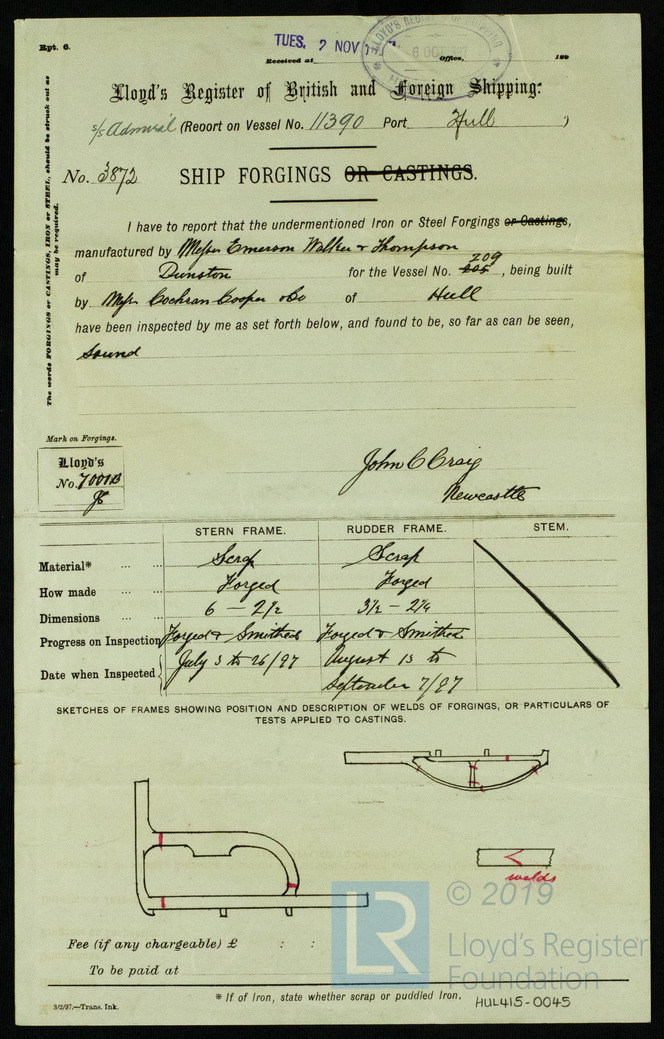 Rpt. 6.
TUES. 2 NOV 1
LLOYD'S REGISTER OF SHIPPING
6 OCT 97
Received at Office, 189
Lloyd's Register of British and Foreign Shipping.
s/s Admiral (Report on Vessel No. 11390 Port Hull )
The words FORGINGS or CASTINGS, IRON or STEEL, should be struck out as may be required.
No. 3872 SHIP FORGINGS OR CASTINGS.
I have to report that the undermentioned Iron or Steel Forgings or Castings,
manufactured by Messrs Emerson Walker & Thompson
209
of Dunston for the Vessel No. 205, being built
by Messrs Cochran Cooper & Co of Hull
have been inspected by me as set forth below, and found to be, so far as can be seen,
sound
Mark on Forgings.
Lloyd's
No. 7001B
John C Craig
Newcastle
STERN FRAME. RUDDER FRAME. STEM.
Material* ... ... Scrap Scrap
How made ... Forged Forged
Dimensions ... 6 — 2½ 3½ — 2¼
Progress on Inspection Forged & Smithed Forged & Smithed
Date when Inspected July 3 to 26/97 August 13 to
September 7/97
SKETCHES OF FRAMES SHOWING POSITION AND DESCRIPTION OF WELDS OF FORGINGS, OR PARTICULARS OF
TESTS APPLIED TO CASTINGS.
welds
© 2019
LR
Lloyd's Register
Foundation
Fee (if any chargeable) £ : :
To be paid at
* If of Iron, state whether scrap or puddled Iron.
3/2/97.—Trans. Ink.
HUL415-0045